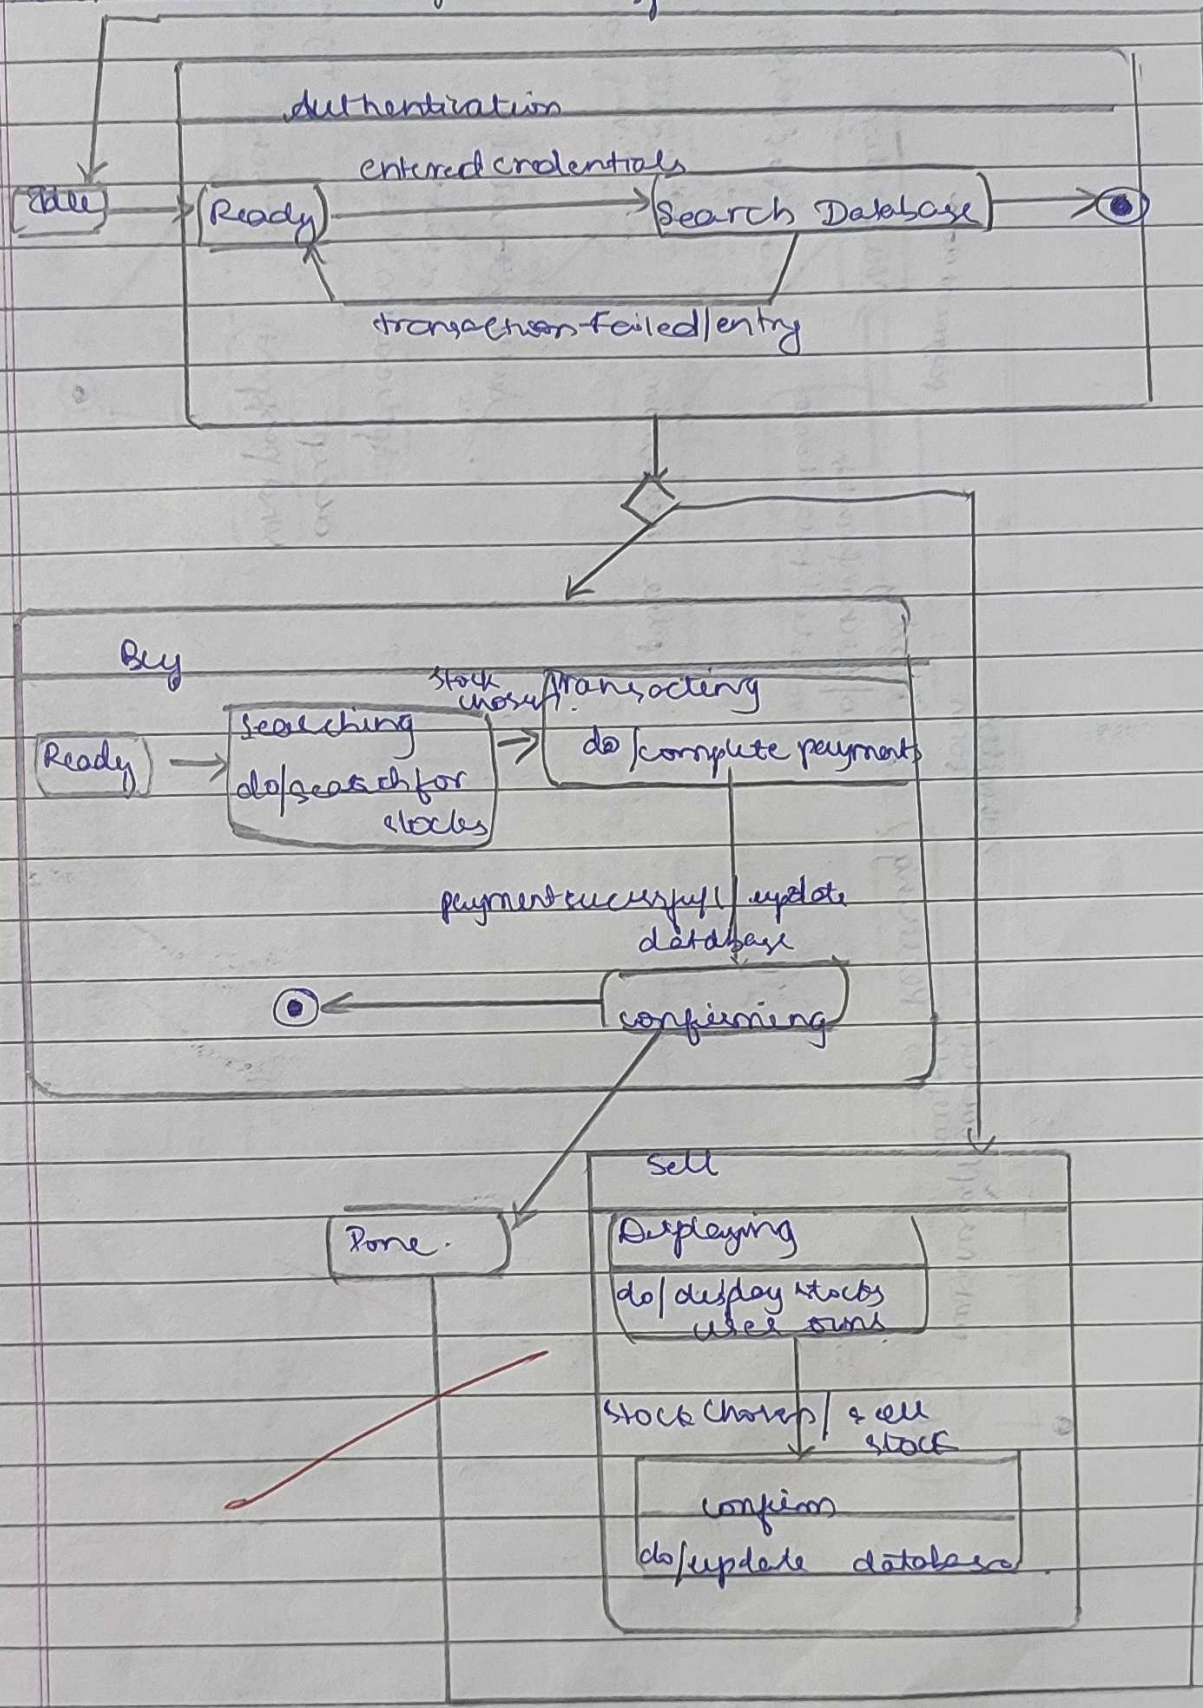 Authentication
entered credentials
Idle
Ready
Search Database
transaction failed/entry
Buy
stock
chosen
Transacting
Searching
Ready
do/complete payments
do/search for
stocks
payment sucessful/update
database
confirming
Sell
Done.
Displaying
do/display stocks
user owns
stock chosen/sell
stock
confirm
do/update database